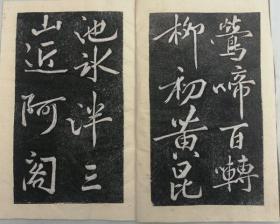 鶯啼百轉
柳初黃昆
池冰泮三
山近阿閣